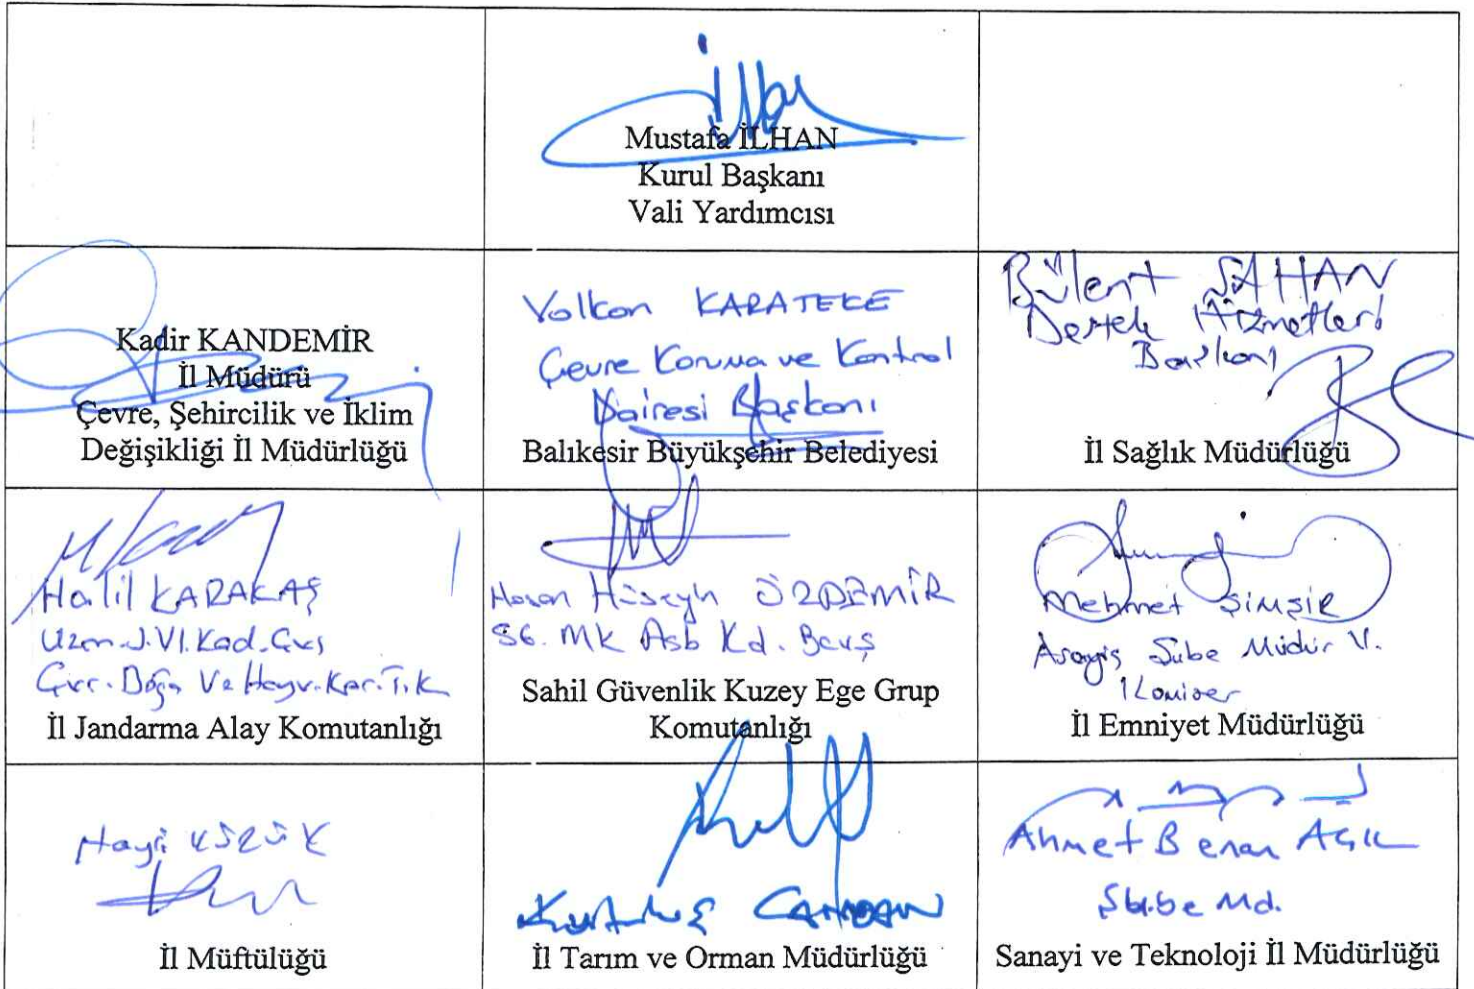 Mustafa İLHAN
Kurul Başkanı
Vali Yardımcısı
Kadir KANDEMİR
İl Müdürü
Çevre, Şehircilik ve İklim
Değişikliği İl Müdürlüğü
Volkan KARATEKE
Çevre Koruma ve Kontrol
Dairesi Başkanı
Balıkesir Büyükşehir Belediyesi
Bülent ŞAHAN
Destek Hizmetleri
Başkanı
İl Sağlık Müdürlüğü
Halil KARAKAŞ
Uzm.J.VI.Kad.Çvş
Çvr. Doğa Ve Hayv. Kor. Tik
İl Jandarma Alay Komutanlığı
Hasan Hüseyin ÖZDEMİR
SG. Mk Asb Kd. Bçvş
Sahil Güvenlik Kuzey Ege Grup
Komutanlığı
Mehmet ŞİMŞİR
Asayiş Şube Müdür V.
İl Emniyet Müdürlüğü
Hayri
İl Müftülüğü
Kurtuluş
İl Tarım ve Orman Müdürlüğü
Ahmet Benan AÇIK
Şube Md.
Sanayi ve Teknoloji İl Müdürlüğü